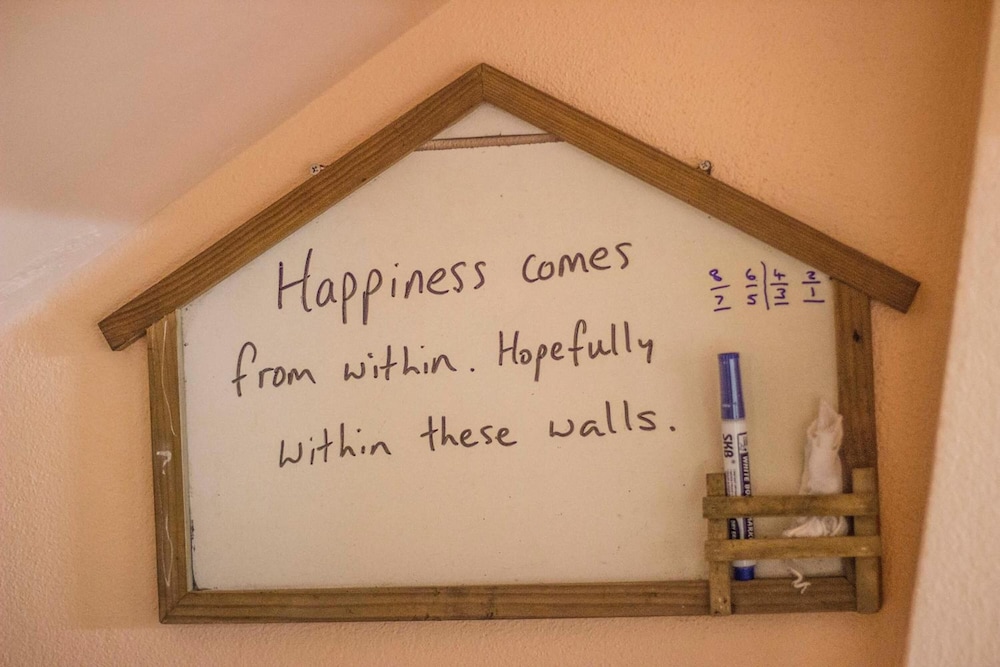 Happiness comes
from within. Hopefully
within these walls.
8 6 | 4 2
7 5 | 3 1
SKB
WHITE BO